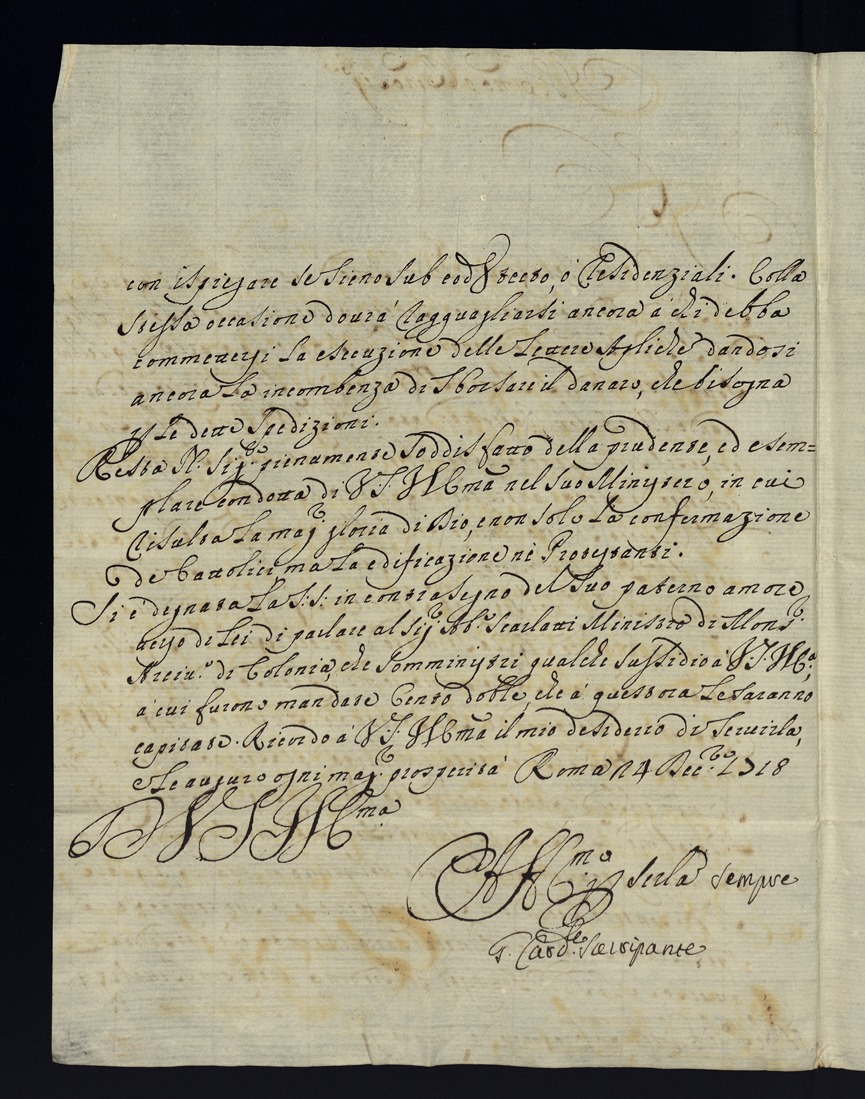 con ispiegare se sieno sub eod. tecto, ò Residenziali. Colla
stessa occasione dourà ragguagliarsi ancora à chi debba
commettersi la esecuzione delle Lettere Apliche dandosi
ancora la incombenza di sborsare il danaro, che bisogna
p le dette spedizioni.
Resta N. Sig.re pienamente soddisfatto della prudente, ed esem=
plare condotta di V.S. Illma nel suo Ministero, in cui
risulta la magr gloria di Dio, e non solo la confermazione
de Cattolici, ma la edificazione ne Protestanti.
Si è degnata la S.S. in contrasegno del suo paterno amore
verso di Lei di parlare al Sigr Ab.e Scarlatti Ministro di Monsr
Arciu.o di Colonia, che somministri qualche sussidio à V.S. Illma,
à cui furono mandate Cento doble, che à quest'ora le saranno
capitate. Ricordo à V.S. Illma il mio desiderio di seruirla,
e le auguro ogni magr prosperità Roma 24 Dec.bre 1718
D V S Ill.ma
Aff.mo p serla sempre
G. Card. Sacripante